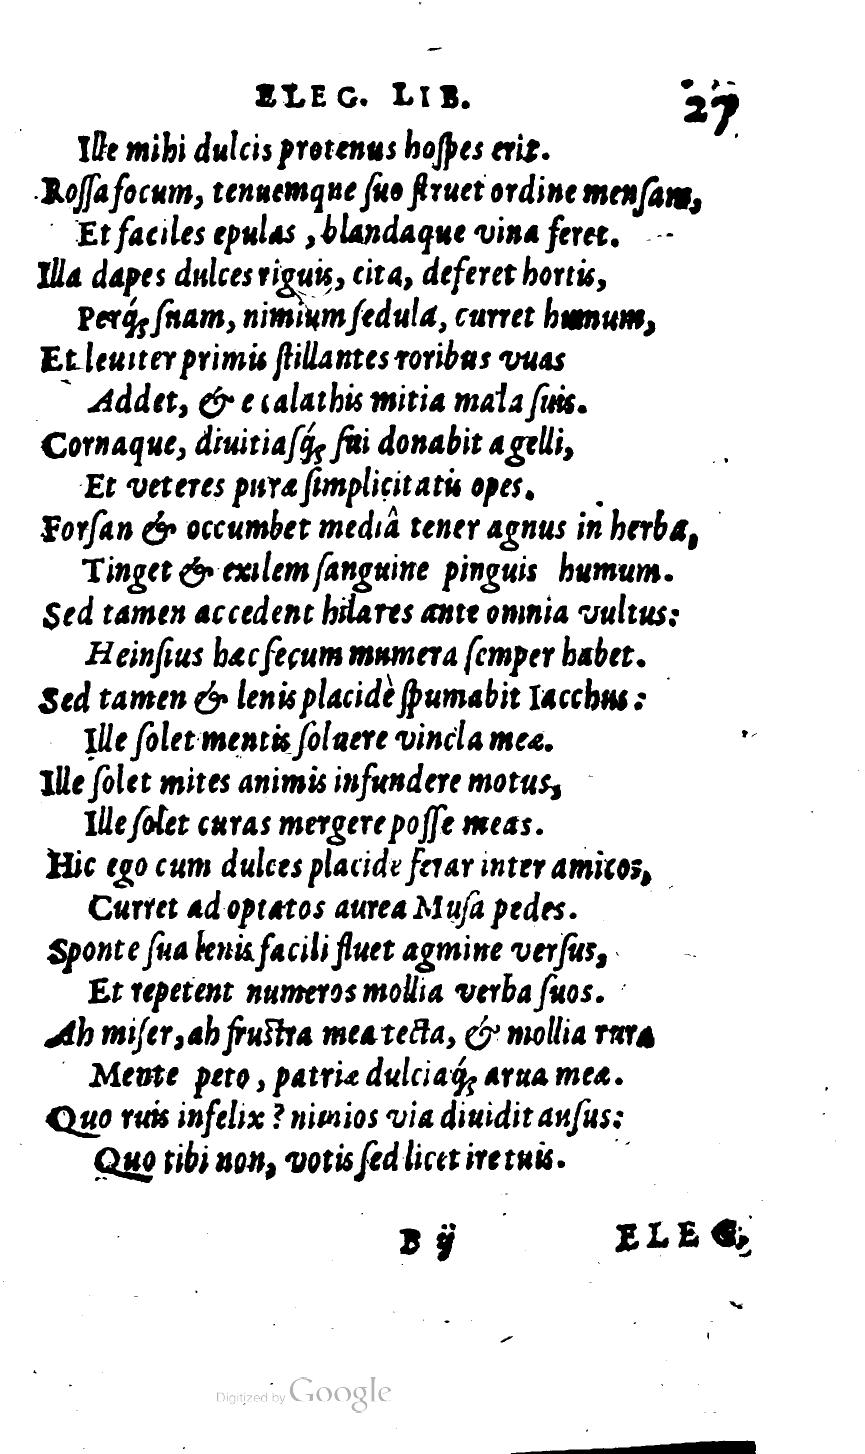 ELEG. LIB. 27
Ille mihi dulcis protenus hoſpes erit.
Roſſa focum, tenuemque ſuo ſtruet ordine menſam,
Et faciles epulas, blandaque vina feret.
Illa dapes dulces riguis, cita, deferet hortis,
Perq́; ſuam, nimium ſedula, curret humum,
Et leuiter primis ſtillantes roribus vuas
Addet, & e calathis mitia mala ſuis.
Cornaque, diuitiaſq́; ſui donabit agelli,
Et veteres puræ ſimplicitatis opes.
Forſan & occumbet mediâ tener agnus in herba,
Tinget & exilem ſanguine pinguis humum.
Sed tamen accedent hilares ante omnia vultus:
Heinſius hæc ſecum munera ſemper habet.
Sed tamen & lenis placidè ſpumabit Iacchus:
Ille ſolet mentis ſoluere vincla meæ.
Ille ſolet mites animis infundere motus,
Ille ſolet curas mergere poſſe meas.
Hic ego cum dulces placide ferar inter amicos,
Curret ad optatos aurea Muſa pedes.
Sponte ſua lenis facili fluet agmine verſus,
Et repetent numeros mollia verba ſuos.
Ah miſer, ah fruſtra mea tecta, & mollia rura
Mente peto, patriæ dulciaq́; arua meæ.
Quo ruis infelix? nimios via diuidit auſus:
Quo tibi non, votis ſed licet ire tuis.
B ij ELEG.
Digitized by Google